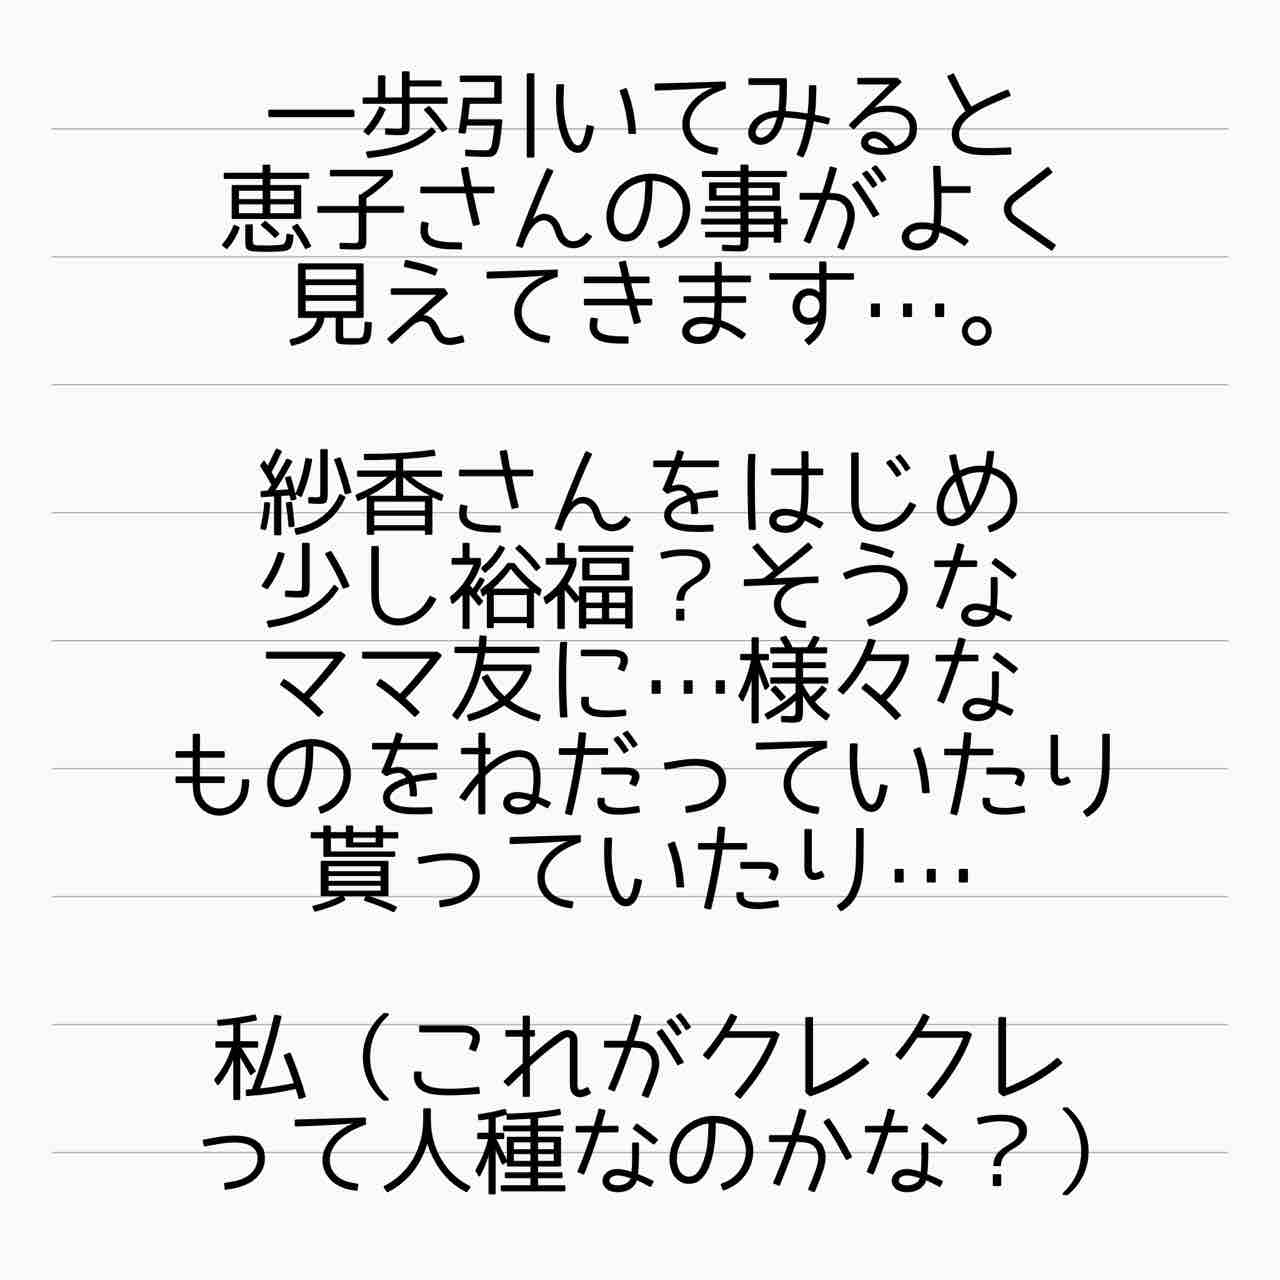 一歩引いてみると
恵子さんの事がよく
見えてきます…。
紗香さんをはじめ
少し裕福？そうな
ママ友に…様々な
ものをねだっていたり
貰っていたり…
私（これがクレクレ
って人種なのかな？）